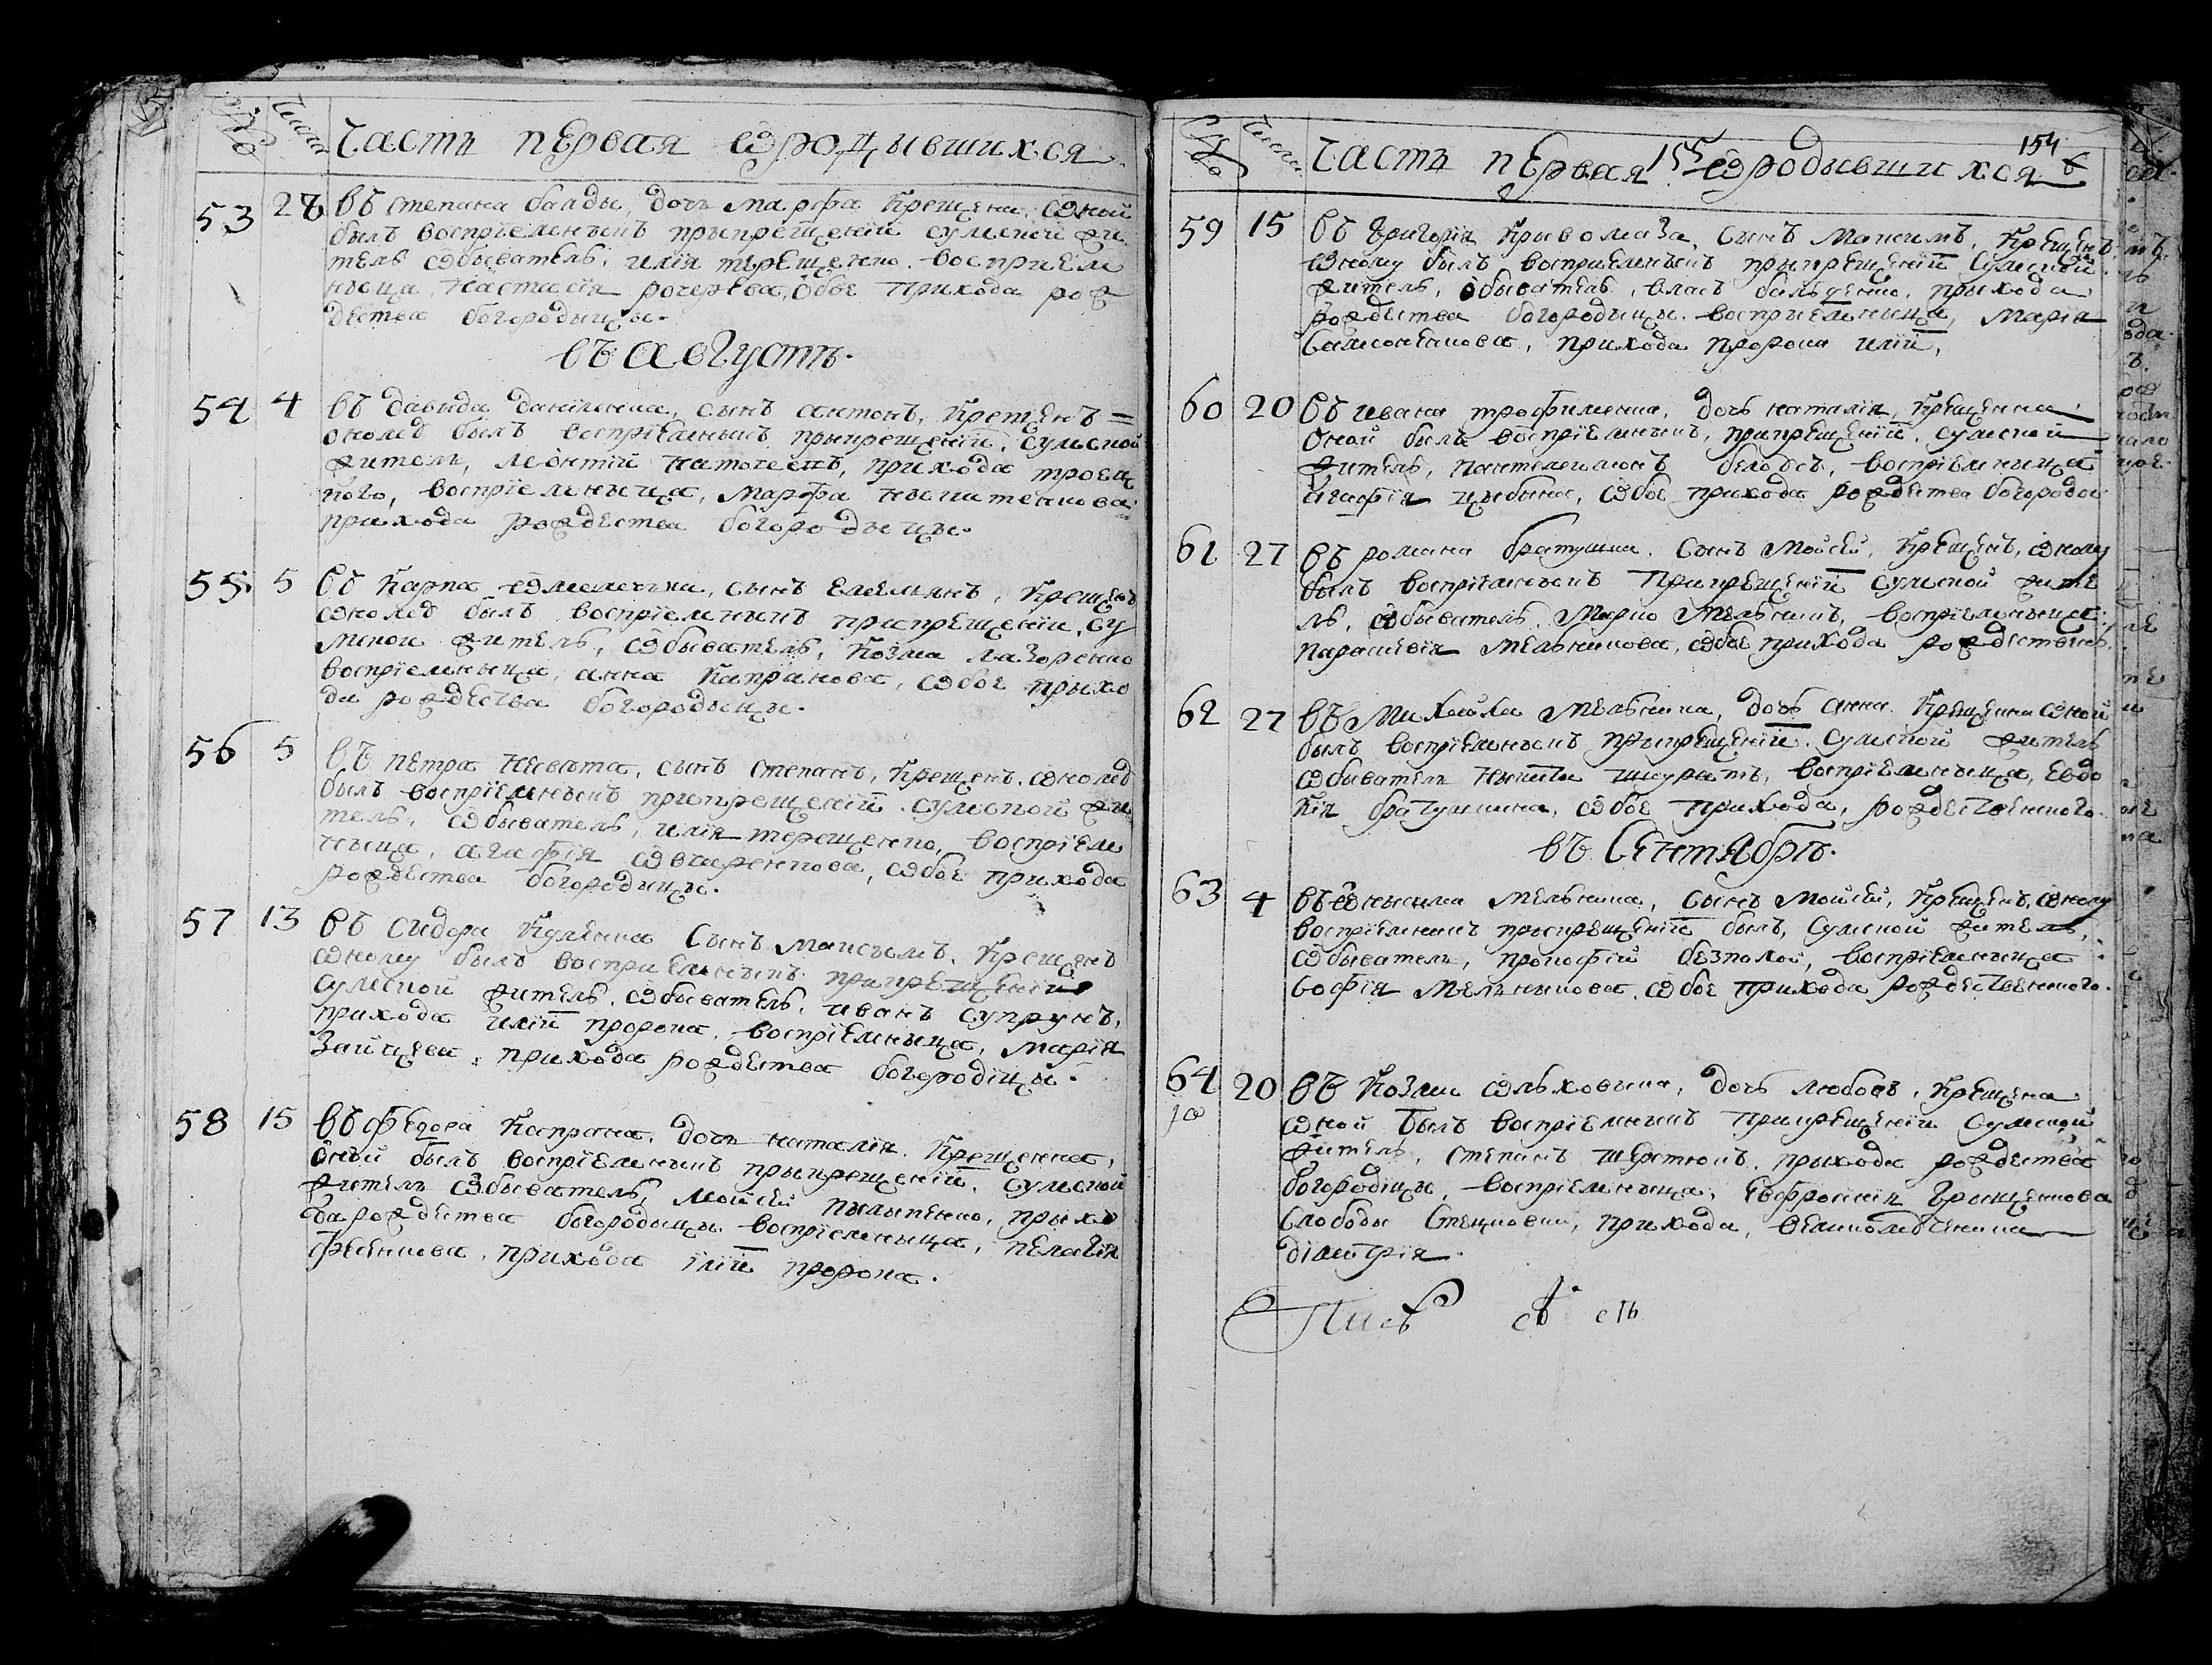 Часть первая ѡродывшихся
53 28 въ степана балды, дочъ марфа крещена, ѡной
былъ воспрїемныкъ прыкрещенїи сумской жи
тель ѡбыватель, илїя терещенко. воспрїем
ныца настасїя обое прихода рож
дества богородыцы.
въ августѣ.
54 4 въ давыда данїленка, сынъ антонъ, крещенъ =
былъ воспрїемныкъ прыкрещенїи, сумской
житель, леонтїй прихода троец
кого, воспрїемныца, марфа
прихода рождества богородыцы.
55 5 въ карпа сынъ емелїянъ, крещенъ
былъ воспрїемныкъ прикрещенїи, су
мской житель, ѡбыватель, козма лазоренко
воспрїемныца, анна капранова, ѡбое прыхо
да рождества богородыцы.
56 5 въ петра сынъ степанъ, крещенъ,
былъ воспрїемныкъ прикрещенїи сумской жи
тель, ѡбыватель, илїя терещенко, воспрїем
ныца, агафїя ѡбое прихода
рождества богородыцы.
57 13 въ сидора куленка сынъ маѯымъ, крещенъ
ѡному былъ воспрїемныкъ прикрещенїи
сумской житель, ѡбыватель, иванъ супрунъ,
прихода илїи пророка, воспрїемныца, марїя
зайцева, прихода рождества богородїцы.
58 15 въ федора капрана, дочъ наталїя, крещенна,
оной былъ воспрїемныкъ прыкрещенїи, сумской
житель ѡбыватель, мойсей пылыпенко, прихо
да рождества богородыцы. воспрїемныца, пелагїя
прихода їлїи пророка.
154
Часть первая 155 ѡродывшихся
59 15 въ григорїя кривомаза, сынъ маѯимъ, крещенъ
ѡному былъ воспрїемныкъ прыкрещенїи сумской
житель, обыватель, власъ прыхода
рождества богородыцы. воспрыемныца, марїя
прихода пророка илїи,
60 20 въ ивана трофименка, дочъ наталїя, крещенна
оной былъ воспрїемныкъ, прикрещенїи, сумской
житель, пантелеимонъ воспрїемныца
агафїя цыбына, ѡбое прихода рождества богородо
61 27 въ романа братушки, сынъ мойсей, крещенъ, ѡному
былъ воспрїемныкъ прикрещенїи сумской жите
ль, ѡбыватель, марко мельникъ, воспрїемныца
параскевїя мельникова, ѡбое прихода рождественс.
62 27 въ михайла мельника, дочъ анна, крещенна ѡной
былъ воспрїемныкъ прыкрещенїи, сумской житель
ѡбыватель никита шкуратъ, воспрїемныца, евдо
кїя братушкина, ѡбое прихода, рождественского.
въ сентябрѣ.
63 4 въ ѡнысима мельника, сынъ мойсей, крещенъ, ѡному
воспрїемникъ прыкрещенїи былъ, сумской житель,
ѡбыватель, прокофїй безпалой, воспрїемныца
софїя мельныкова, ѡбое прихода рождественского.
64 20 въ козми ѡльховыка, дочъ любовъ, крещена
ѡной былъ воспрїемныкъ прикрещенїи сумской
житель, степанъ прыхода рождества
богородїцы, воспрїемныца, евфросїнїя грыщенкова
слободы стецковки, прихода, великомученика
дїмитрїя.